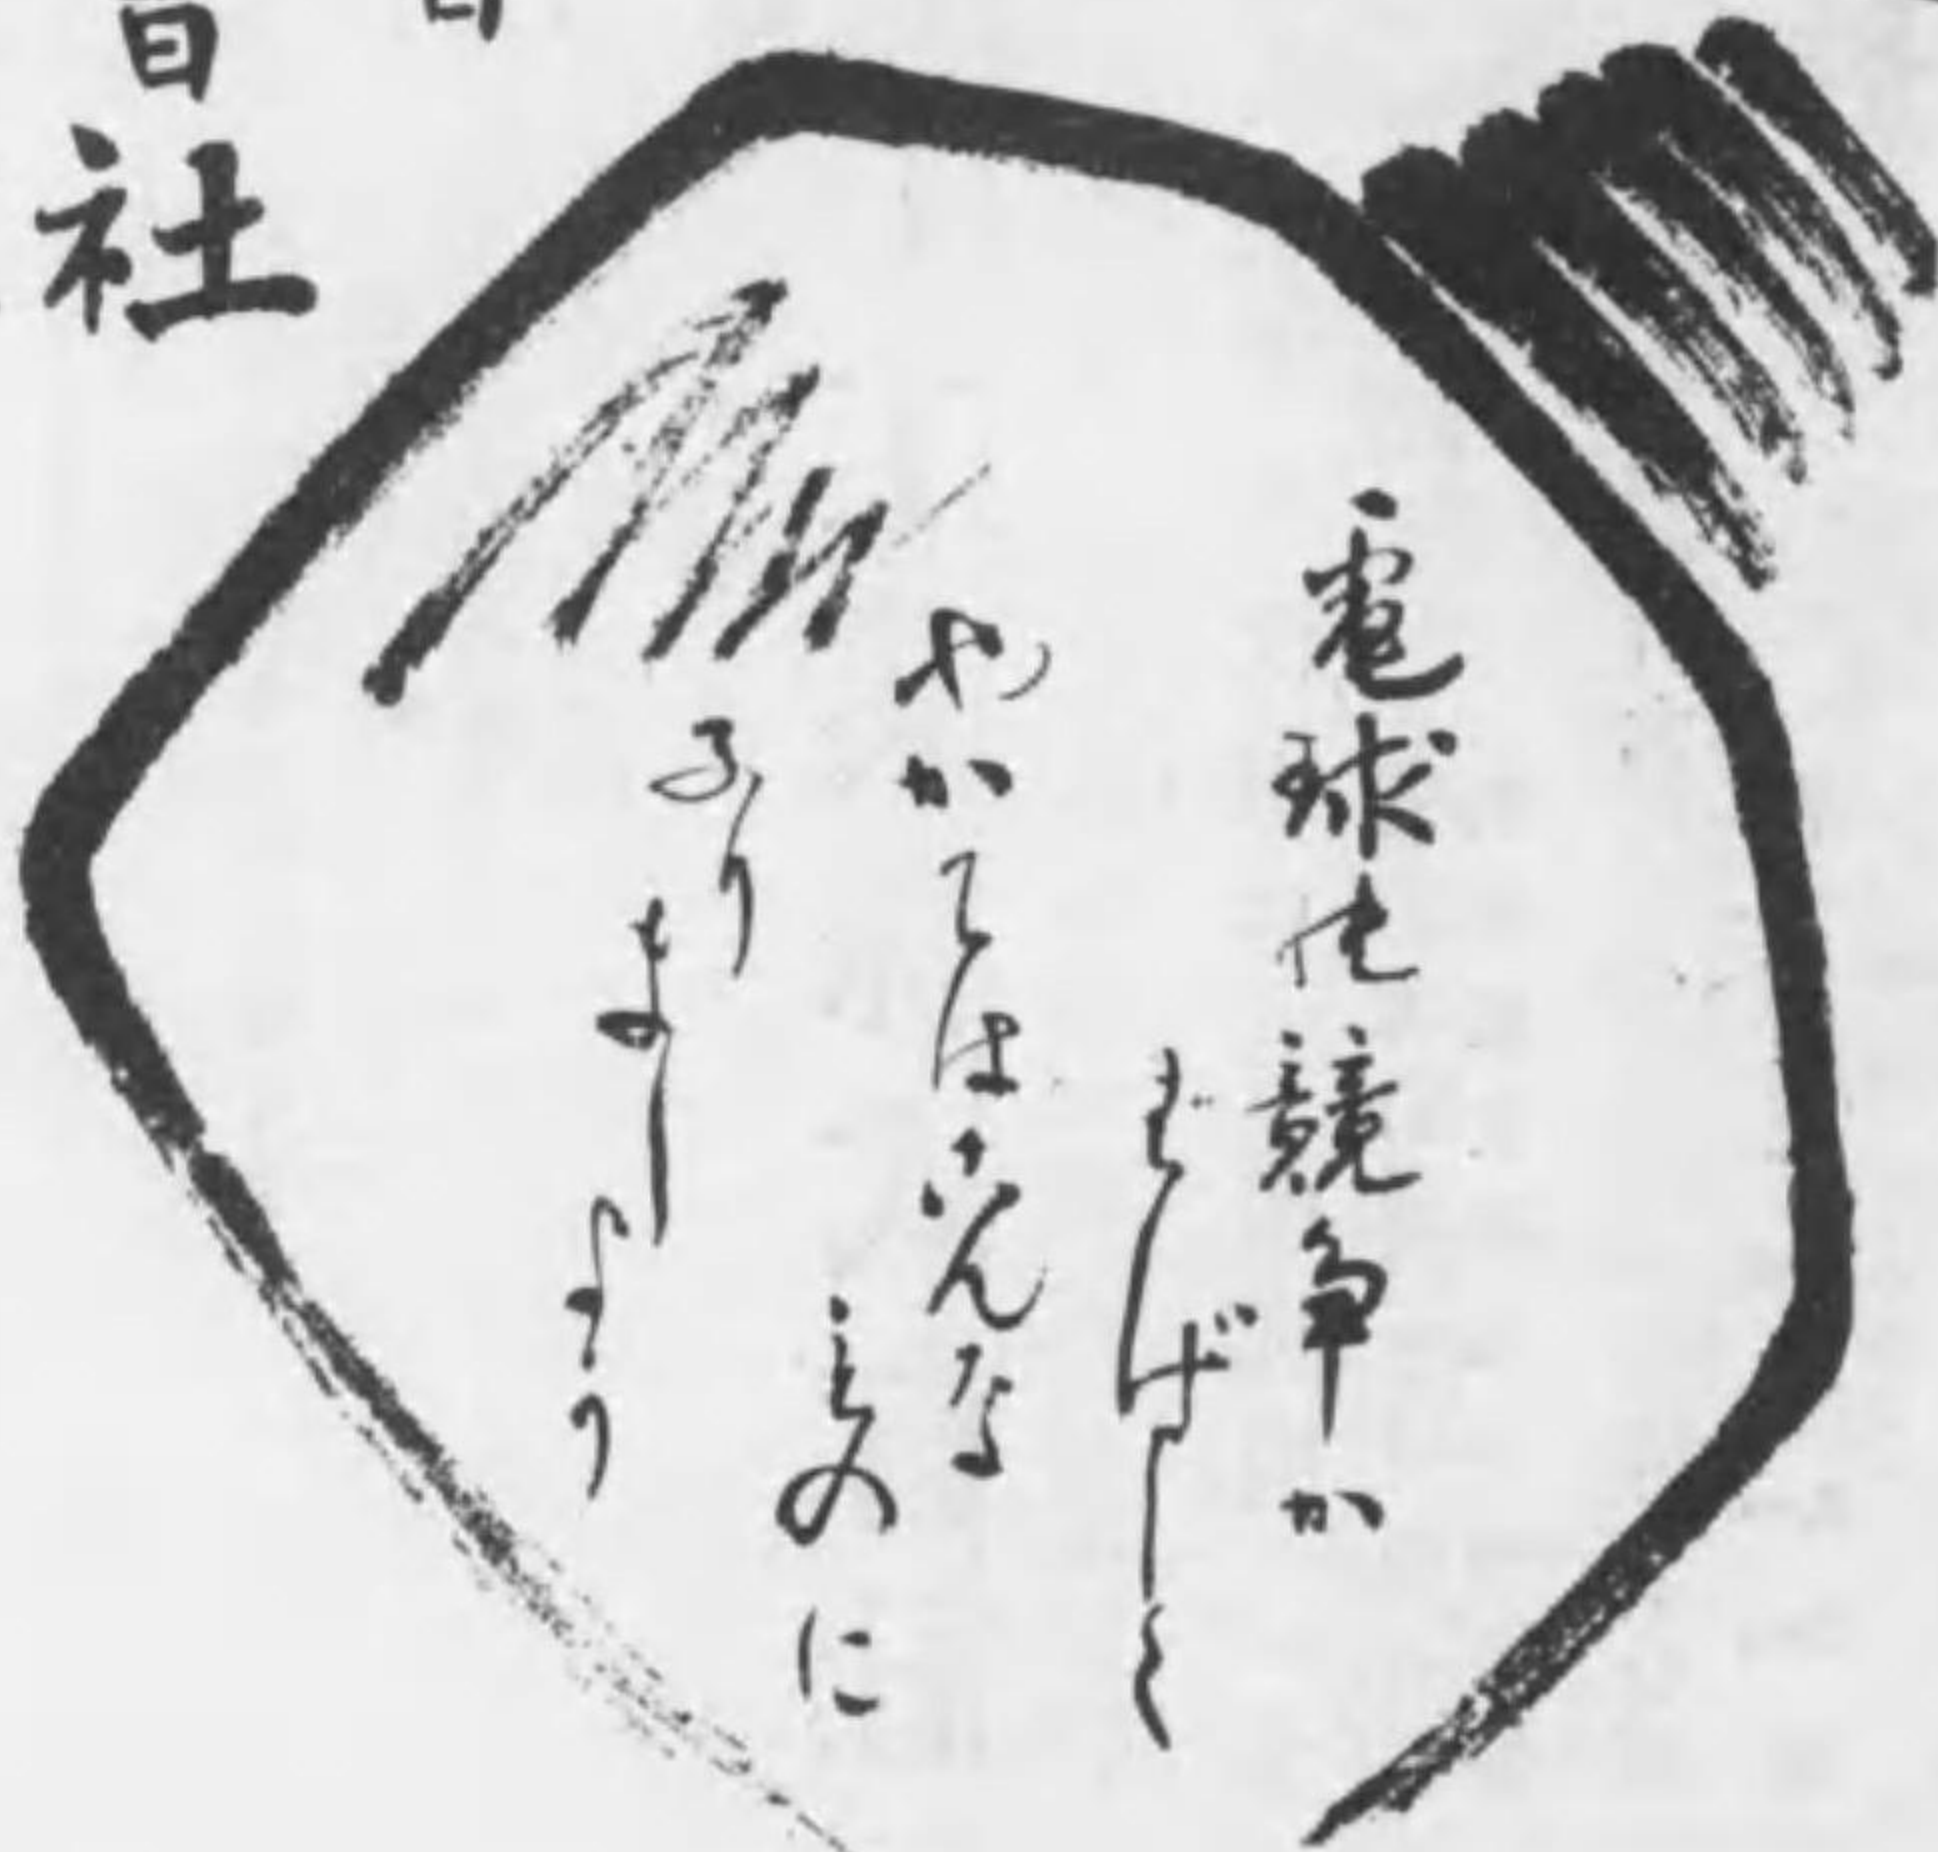 社
電球化競争か
はげしく
やかてはこんな
ものに
なり
ましよう